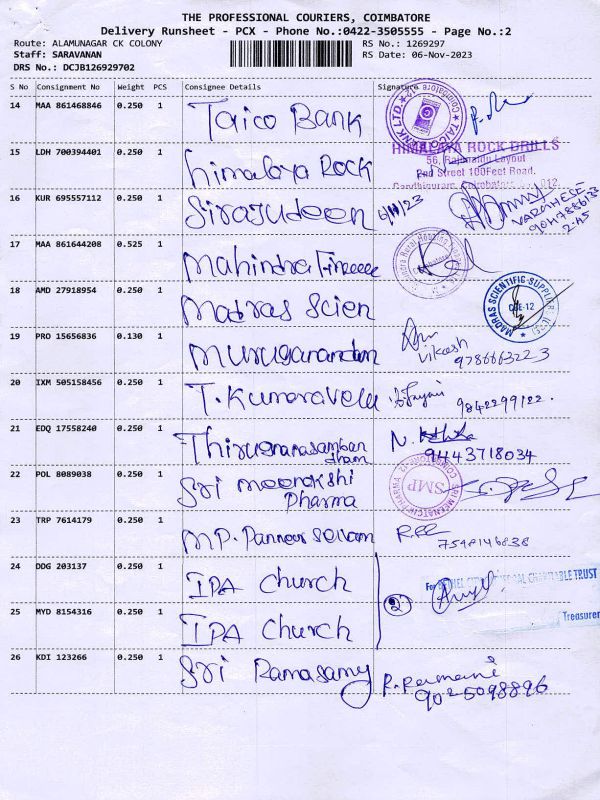 THE PROFESSIONAL COURIERS, COIMBATORE
Delivery Runsheet - PCX - Phone No.:0422-3505555 - Page No.:2
Route: ALAMUNAGAR CK COLONY RS No.: 1269297
Staff: SARAVANAN RS Date: 06-Nov-2023
DRS No.: DCJB126929702
S No Consignment No Weight PCS Consignee Details Signature
14 MAA 861468846 0.250 1 Taico Bank
15 LDH 700394401 0.250 1 Himalaya Rock
HIMALAYA ROCK DRILLS
56, Rajanaidu Layout
2nd Street 100Feet Road,
Gandhipuram, Coimbatore
16 KUR 695557112 0.250 1 Sirajudeen 6/11/23
VARGHESE
2.45
17 MAA 861644208 0.525 1 Mahindra
18 AMD 27918954 0.250 1 Madras Scien
MADRAS SCIENTIFIC SUPPLIERS
CBE-12
19 PRO 15656836 0.130 1
Vikash
20 IXM 505158456 0.250 1 T. Kumaravelu
9842299122.
21 EDQ 17558240 0.250 1
9443718034
22 POL 8089038 0.250 1 Sri meenakshi
Pharma
SRI MEENATCHI PHARMA
SMP
23 TRP 7614179 0.250 1 MP. Panneer Selvam
7598146838
24 DDG 203137 0.250 1 IPA Church
CHARITABLE TRUST
2
25 MYD 8154316 0.250 1 IPA Church
Treasurer
26 KDI 123266 0.250 1 Sri Ramasamy
9025098896